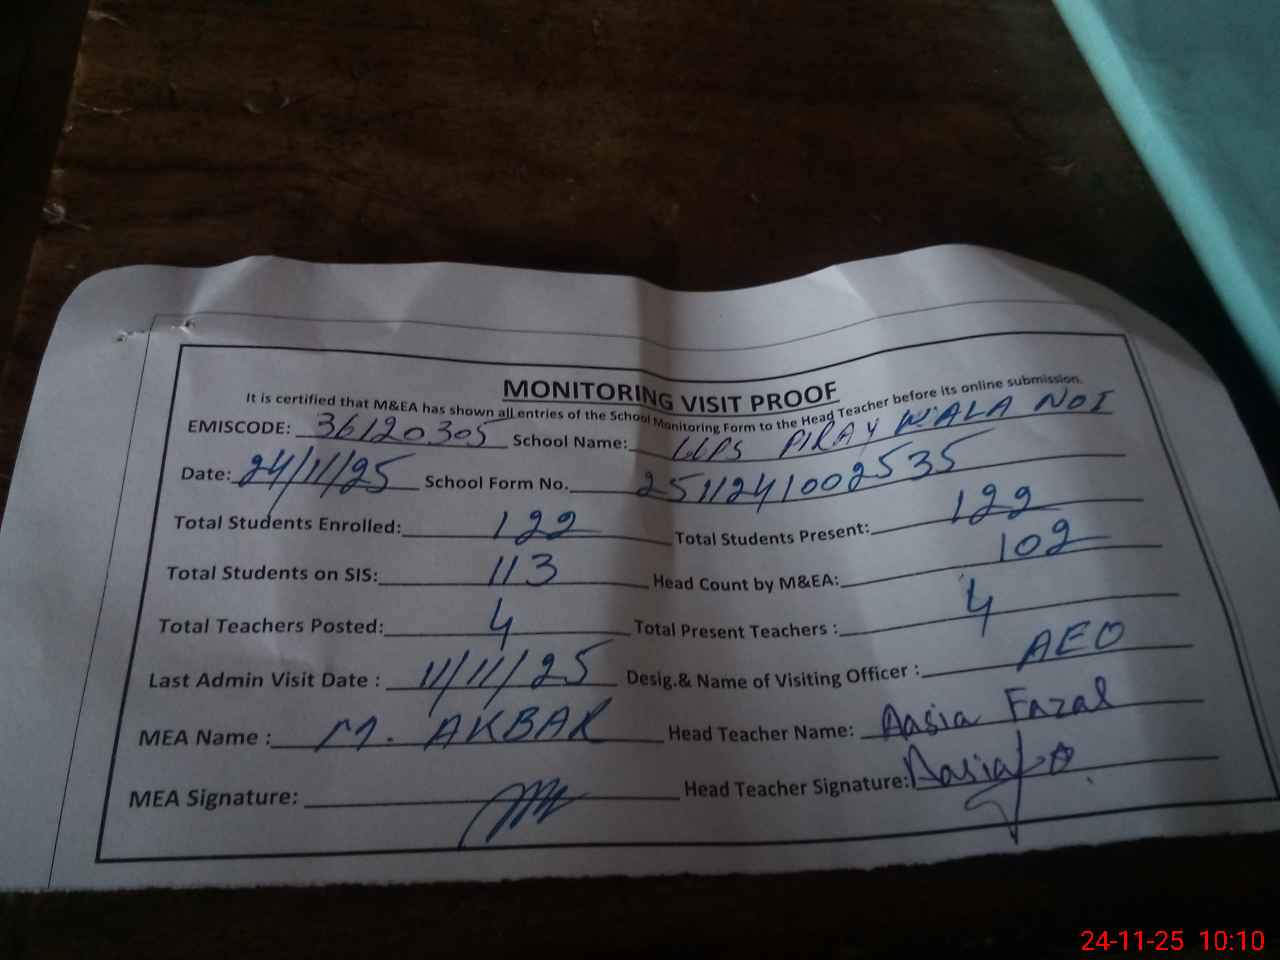 MONITORING VISIT PROOF
It is certified that M&EA has shown all entries of the School Monitoring Form to the Head Teacher before its online submission.
EMISCODE: 36120305 School Name: PIRAY WALA NO I
Date: 24/11/25 School Form No. 2511241002535
Total Students Enrolled: 122 Total Students Present: 122
Total Students on SIS: 113 Head Count by M&EA: 102
Total Teachers Posted: 4 Total Present Teachers : 4
Last Admin Visit Date : 11/11/25 Desig.& Name of Visiting Officer : AEO
MEA Name : M. AKBAR Head Teacher Name: Aasia Fazal
MEA Signature: Head Teacher Signature: Aasia
24-11-25 10:10